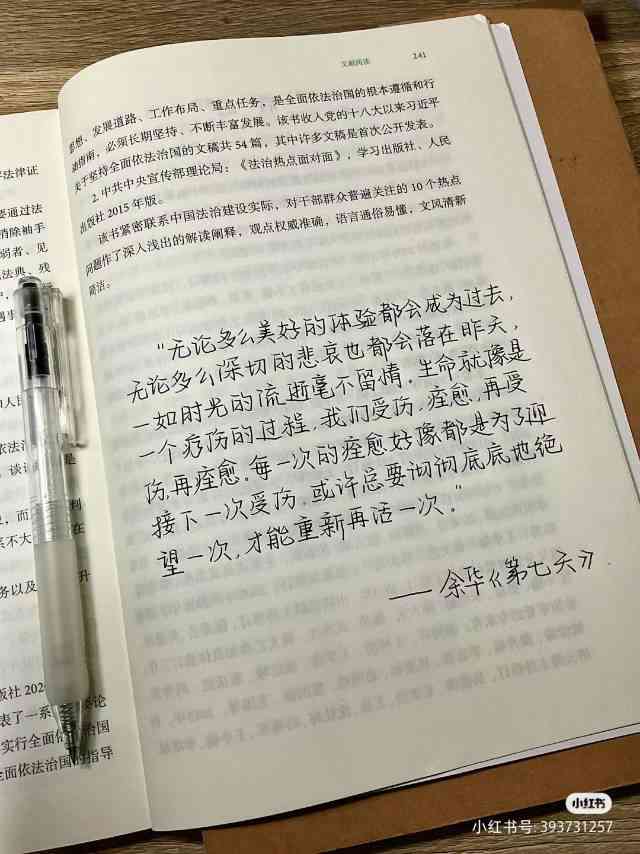 文献阅读 241
思想、发展道路、工作布局、重点任务,是全面依法治国的根本遵循和行
动指南,必须长期坚持、不断丰富发展。该书收入党的十八大以来习近平
关于坚持全面依法治国的文稿共 54 篇,其中许多文稿是首次公开发表。
2. 中共中央宣传部理论局:《法治热点面对面》,学习出版社、人民
出版社 2015 年版。
该书紧密联系中国法治建设实际,对干部群众普遍关注的 10 个热点
问题作了深入浅出的解读阐释,观点权威准确,语言通俗易懂,文风清新
简洁。
“无论多么美好的体验都会成为过去,
无论多么深切的悲哀也都会落在昨天,
一如时光的流逝毫不留情。生命就像是
一个疗伤的过程,我们受伤,痊愈,再受
伤,再痊愈。每一次的痊愈好像都是为了迎
接下一次受伤。或许总要彻彻底底地绝
望一次,才能重新再活一次。”
——余华《第七天》
法律证
要通过法
消除袖手
弱者、见
法典,残
系不大
务以及
升
版社 202
表了一系
论
实行全面依法治国
全面依法治国的指导
小红书
小红书号: 393731257